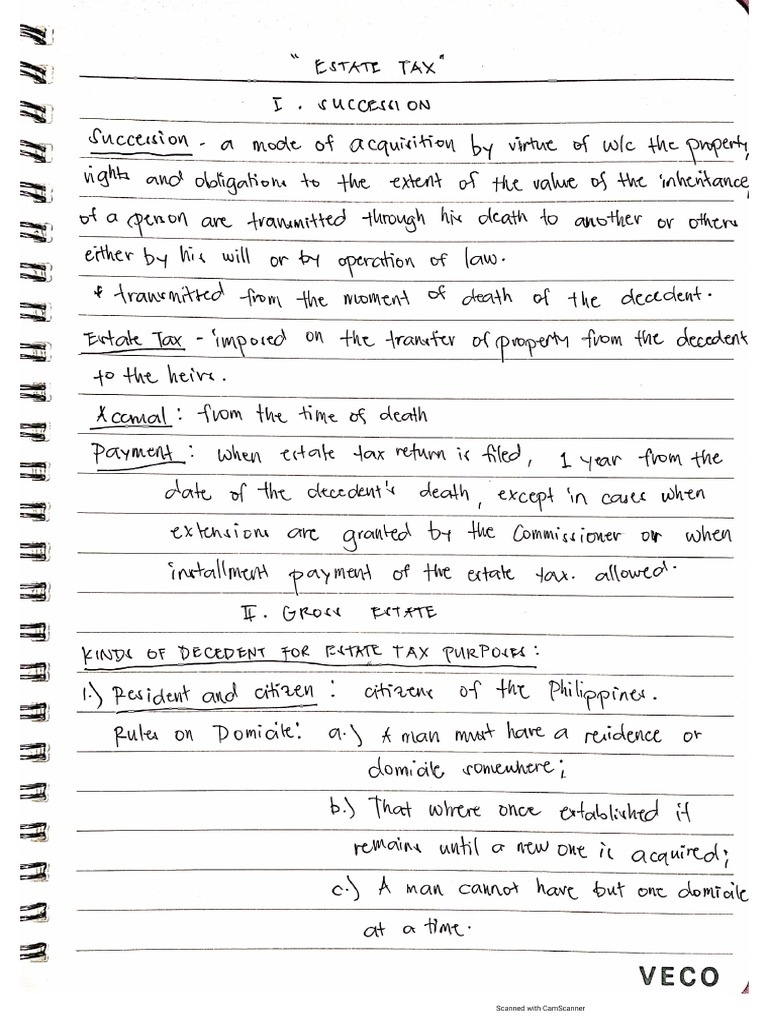 " ESTATE TAX"
I. SUCCESSION
Succession - a mode of acquisition by virtue of w/c the property,
rights and obligations to the extent of the value of the inheritance,
of a person are transmitted through his death to another or others
either by his will or by operation of law.
* transmitted from the moment of death of the decedent.
Estate Tax - imposed on the transfer of property from the decedent
to the heirs.
Accrual: from the time of death
Payment: when estate tax return is filed, 1 year from the
date of the decedent's death, except in cases when
extensions are granted by the Commissioner or when
installment payment of the estate tax. allowed.
II. GROSS ESTATE
KINDS OF DECEDENT FOR ESTATE TAX PURPOSES:
1.) Resident and citizen: citizens of the Philippines.
Rules on Domicile: a.) A man must have a residence or
domicile somewhere;
b.) That where once established it
remains until a new one is acquired;
c.) A man cannot have but one domicile
at a time.
VECO
Scanned with CamScanner